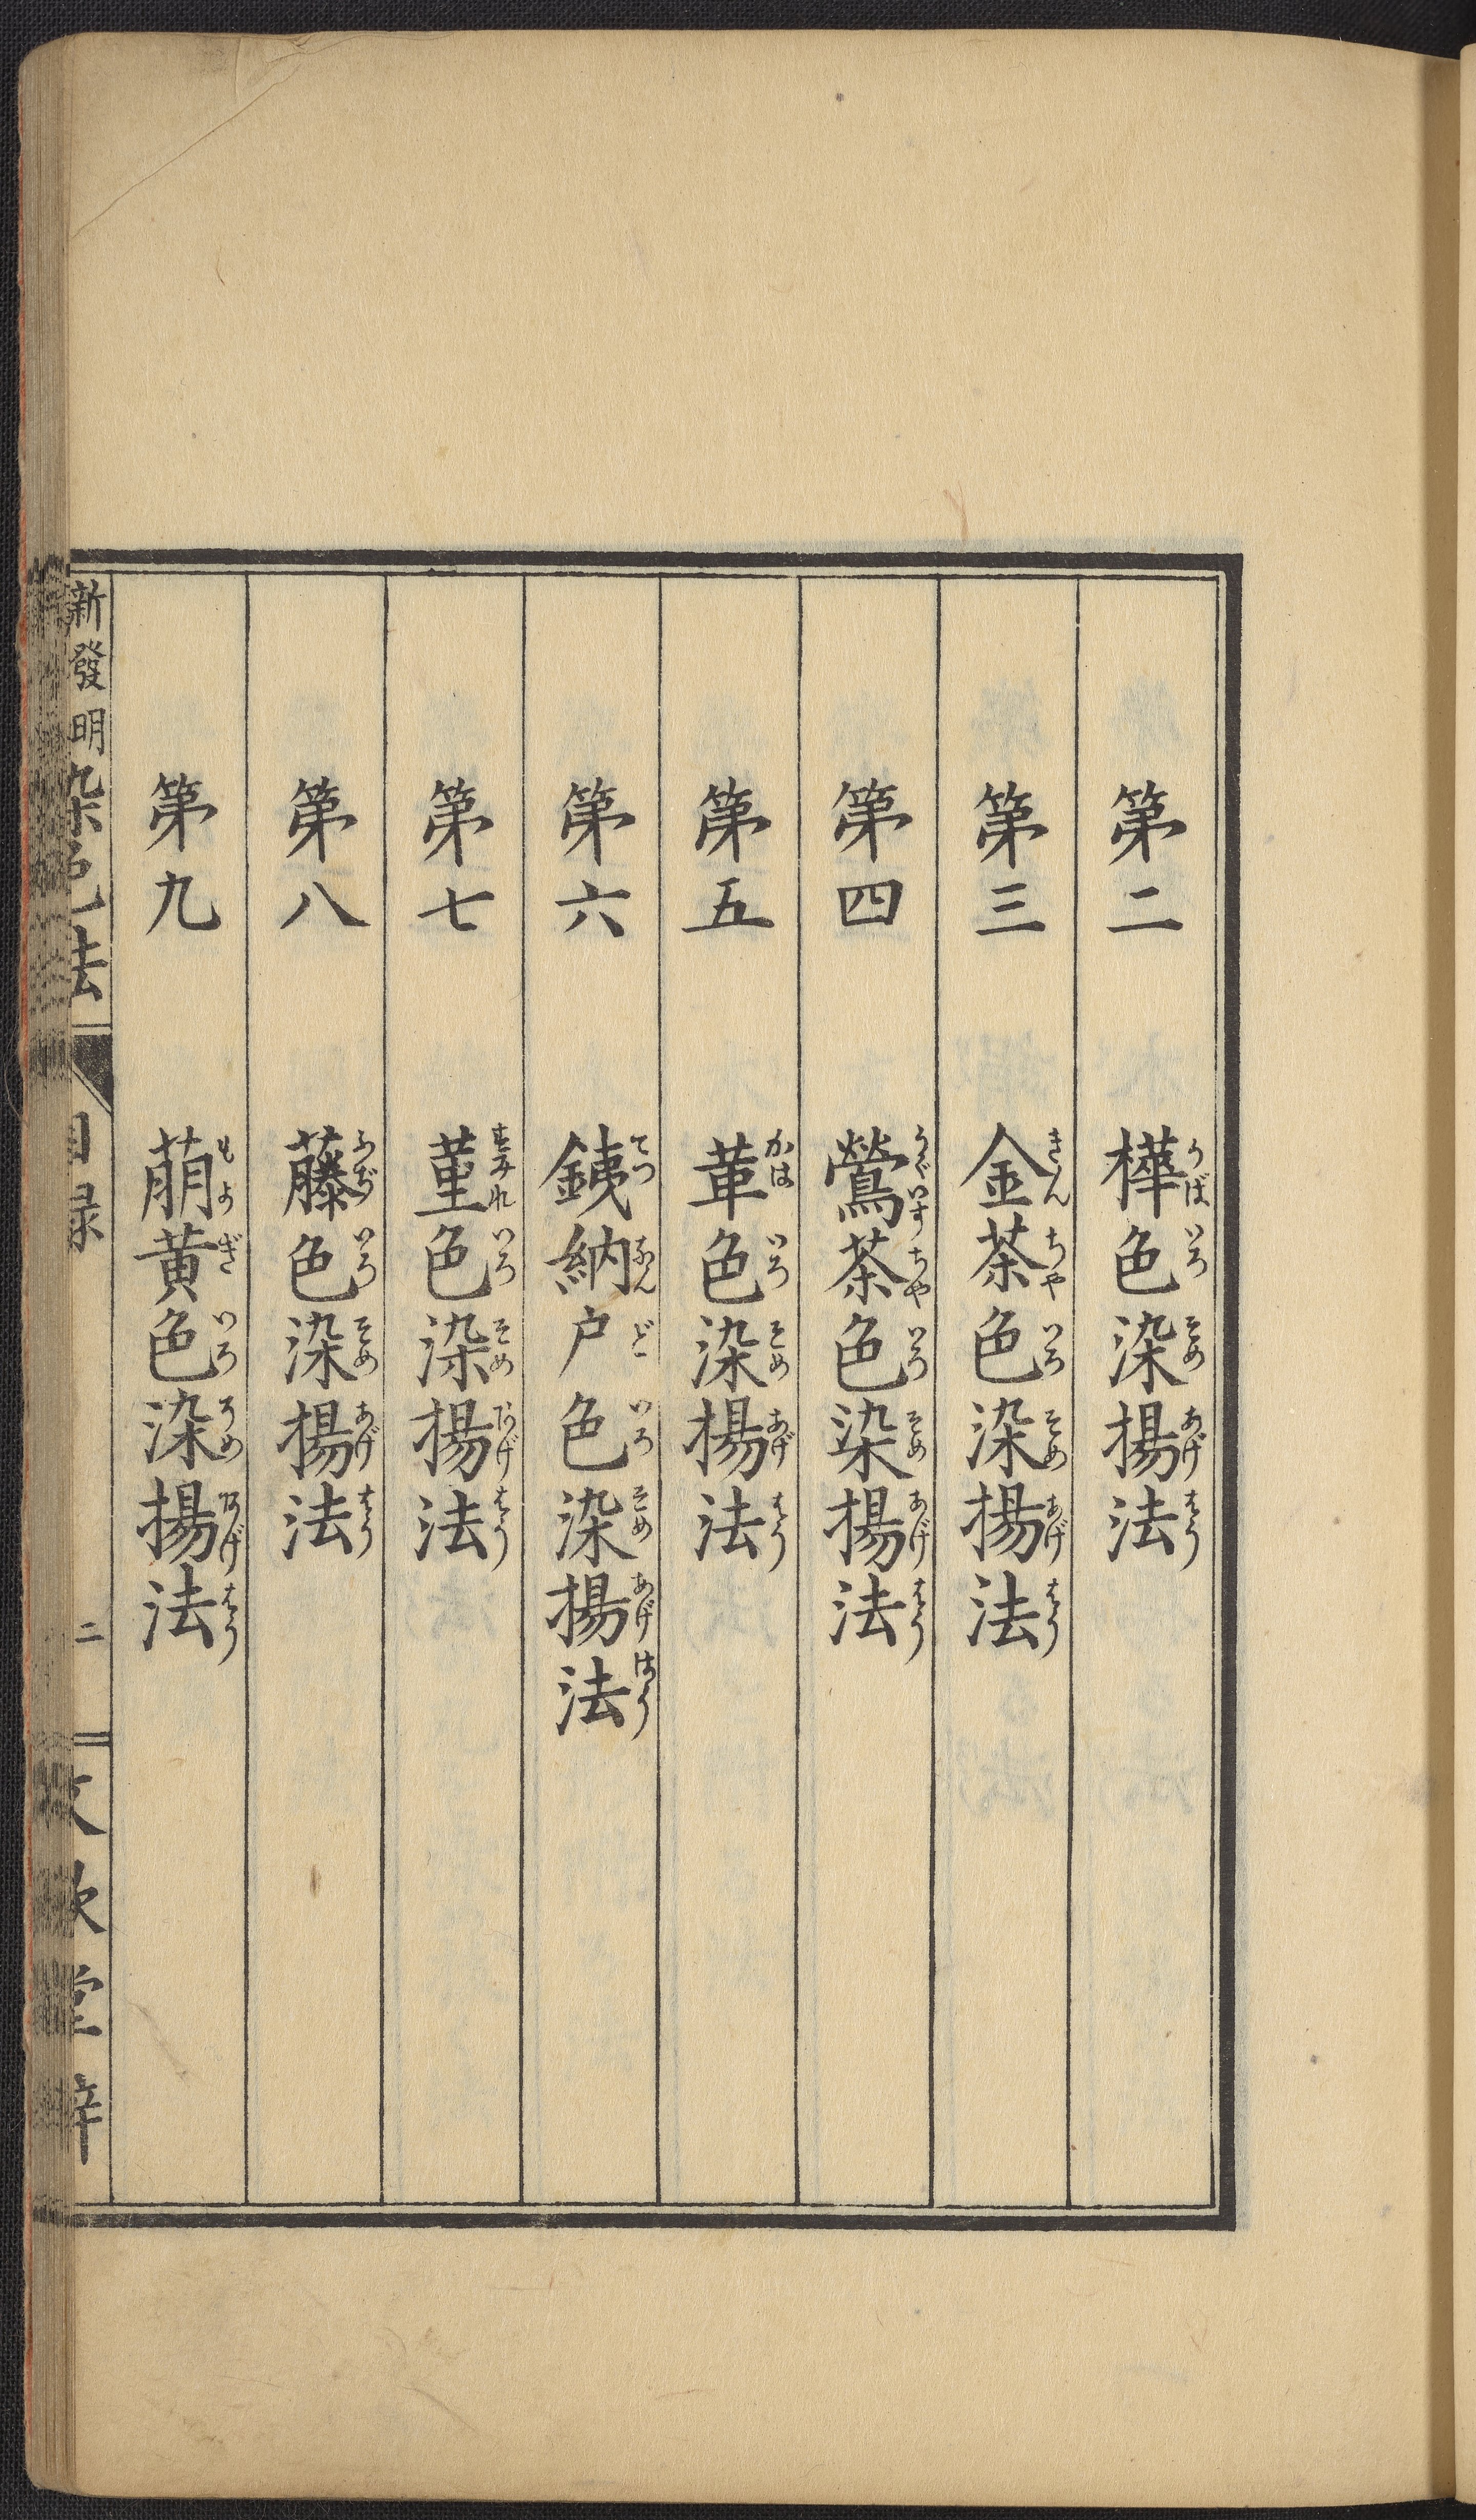 第二 樺色染揚法
第三 金茶色染揚法
第四 鶯茶色染揚法
第五 革色染揚法
第六 銕納戸色染揚法
第七 菫色染揚法
第八 藤色染揚法
第九 萠黄色染揚法
新發明染色法 目録 二